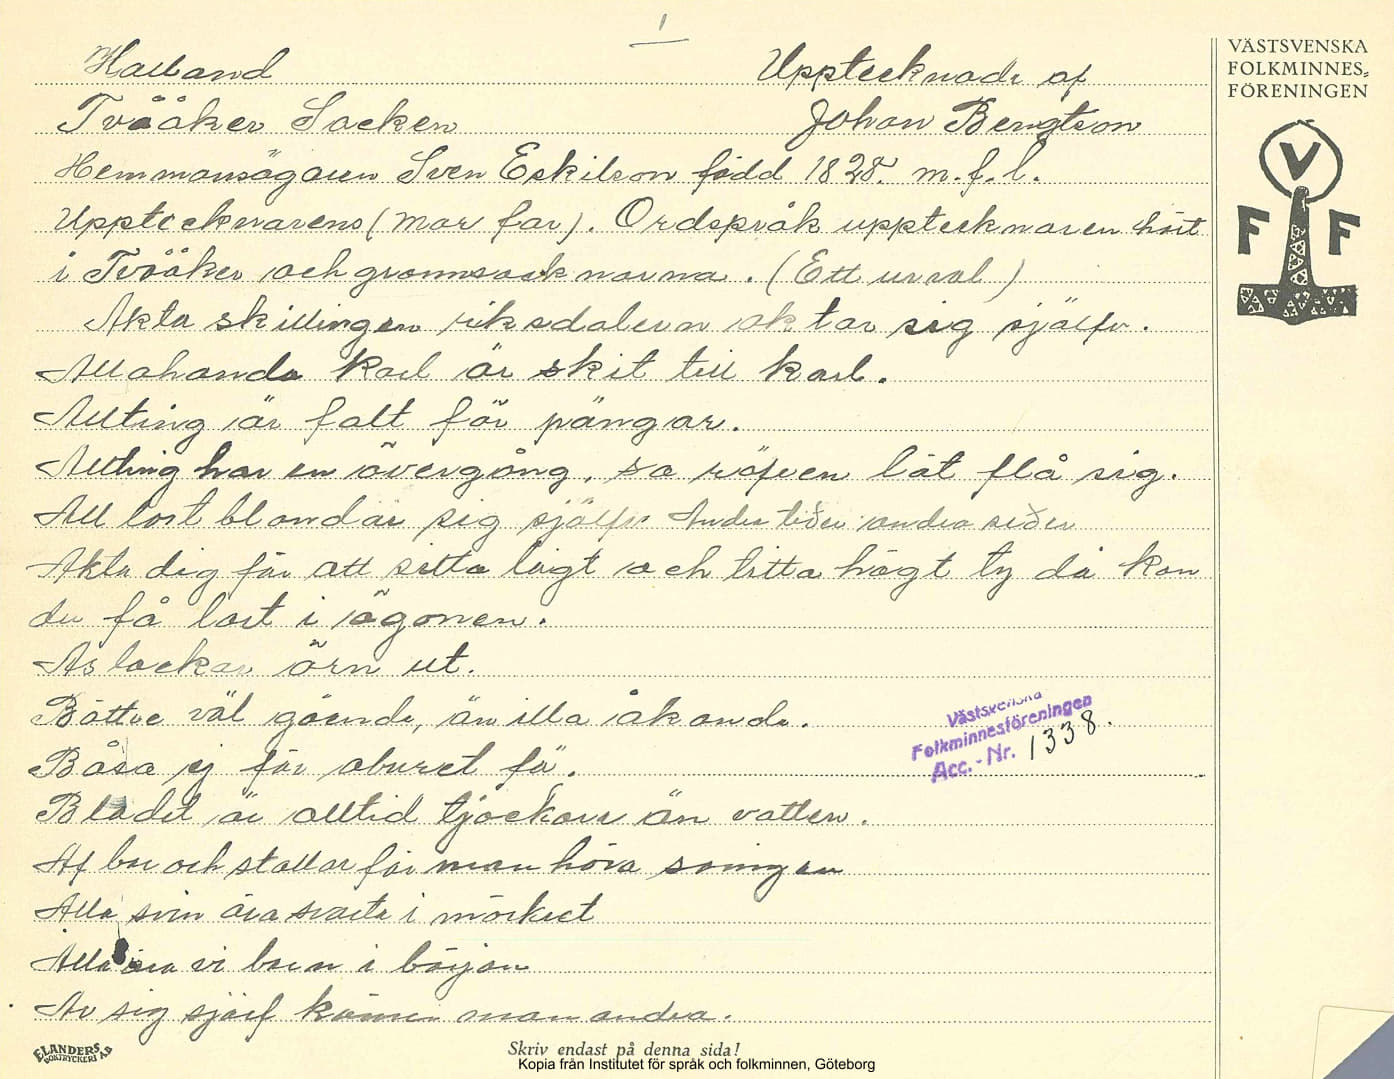 1
Halland Upptecknade af
Tvååker Socken Johan Bengtson
Hemmansägaren Sven Eskilson född 1828. m.f.l.
Upptecknarens (mor far). Ordspråk upptecknaren hört
i Tvååker och grannsocknarna. (Ett urval)
Akta skillingen riksdalern aktar sig sjelfv.
Allahanda karl är skit till karl.
Allting är falt för pängar.
Allting har en övergång, sa räfven lät flå sig.
All lort blandar sig sjelfv Andra tider andra seder
Akta dig för att sitta lågt och titta högt ty då kan
du få lort i ögonen.
As lockar örn ut.
Bättre väl gående, än illa åkande.
Båsa ej för oburet fä.
Blodet är alltid tjockare än vatten.
Af barn och stollar får man höra sanningen
Alla svin ära svarta i mörkret
Alla ära vi barn i början
Av sig sjelf känner man andra.
VÄSTSVENSKA
FOLKMINNES-
FÖRENINGEN
V
F F
Västsvenska
Folkminnesföreningen
Acc. - Nr. 1338.
ELANDERS
BOKTRYCKERI AB
Skriv endast på denna sida!
Kopia från Institutet för språk och folkminnen, Göteborg